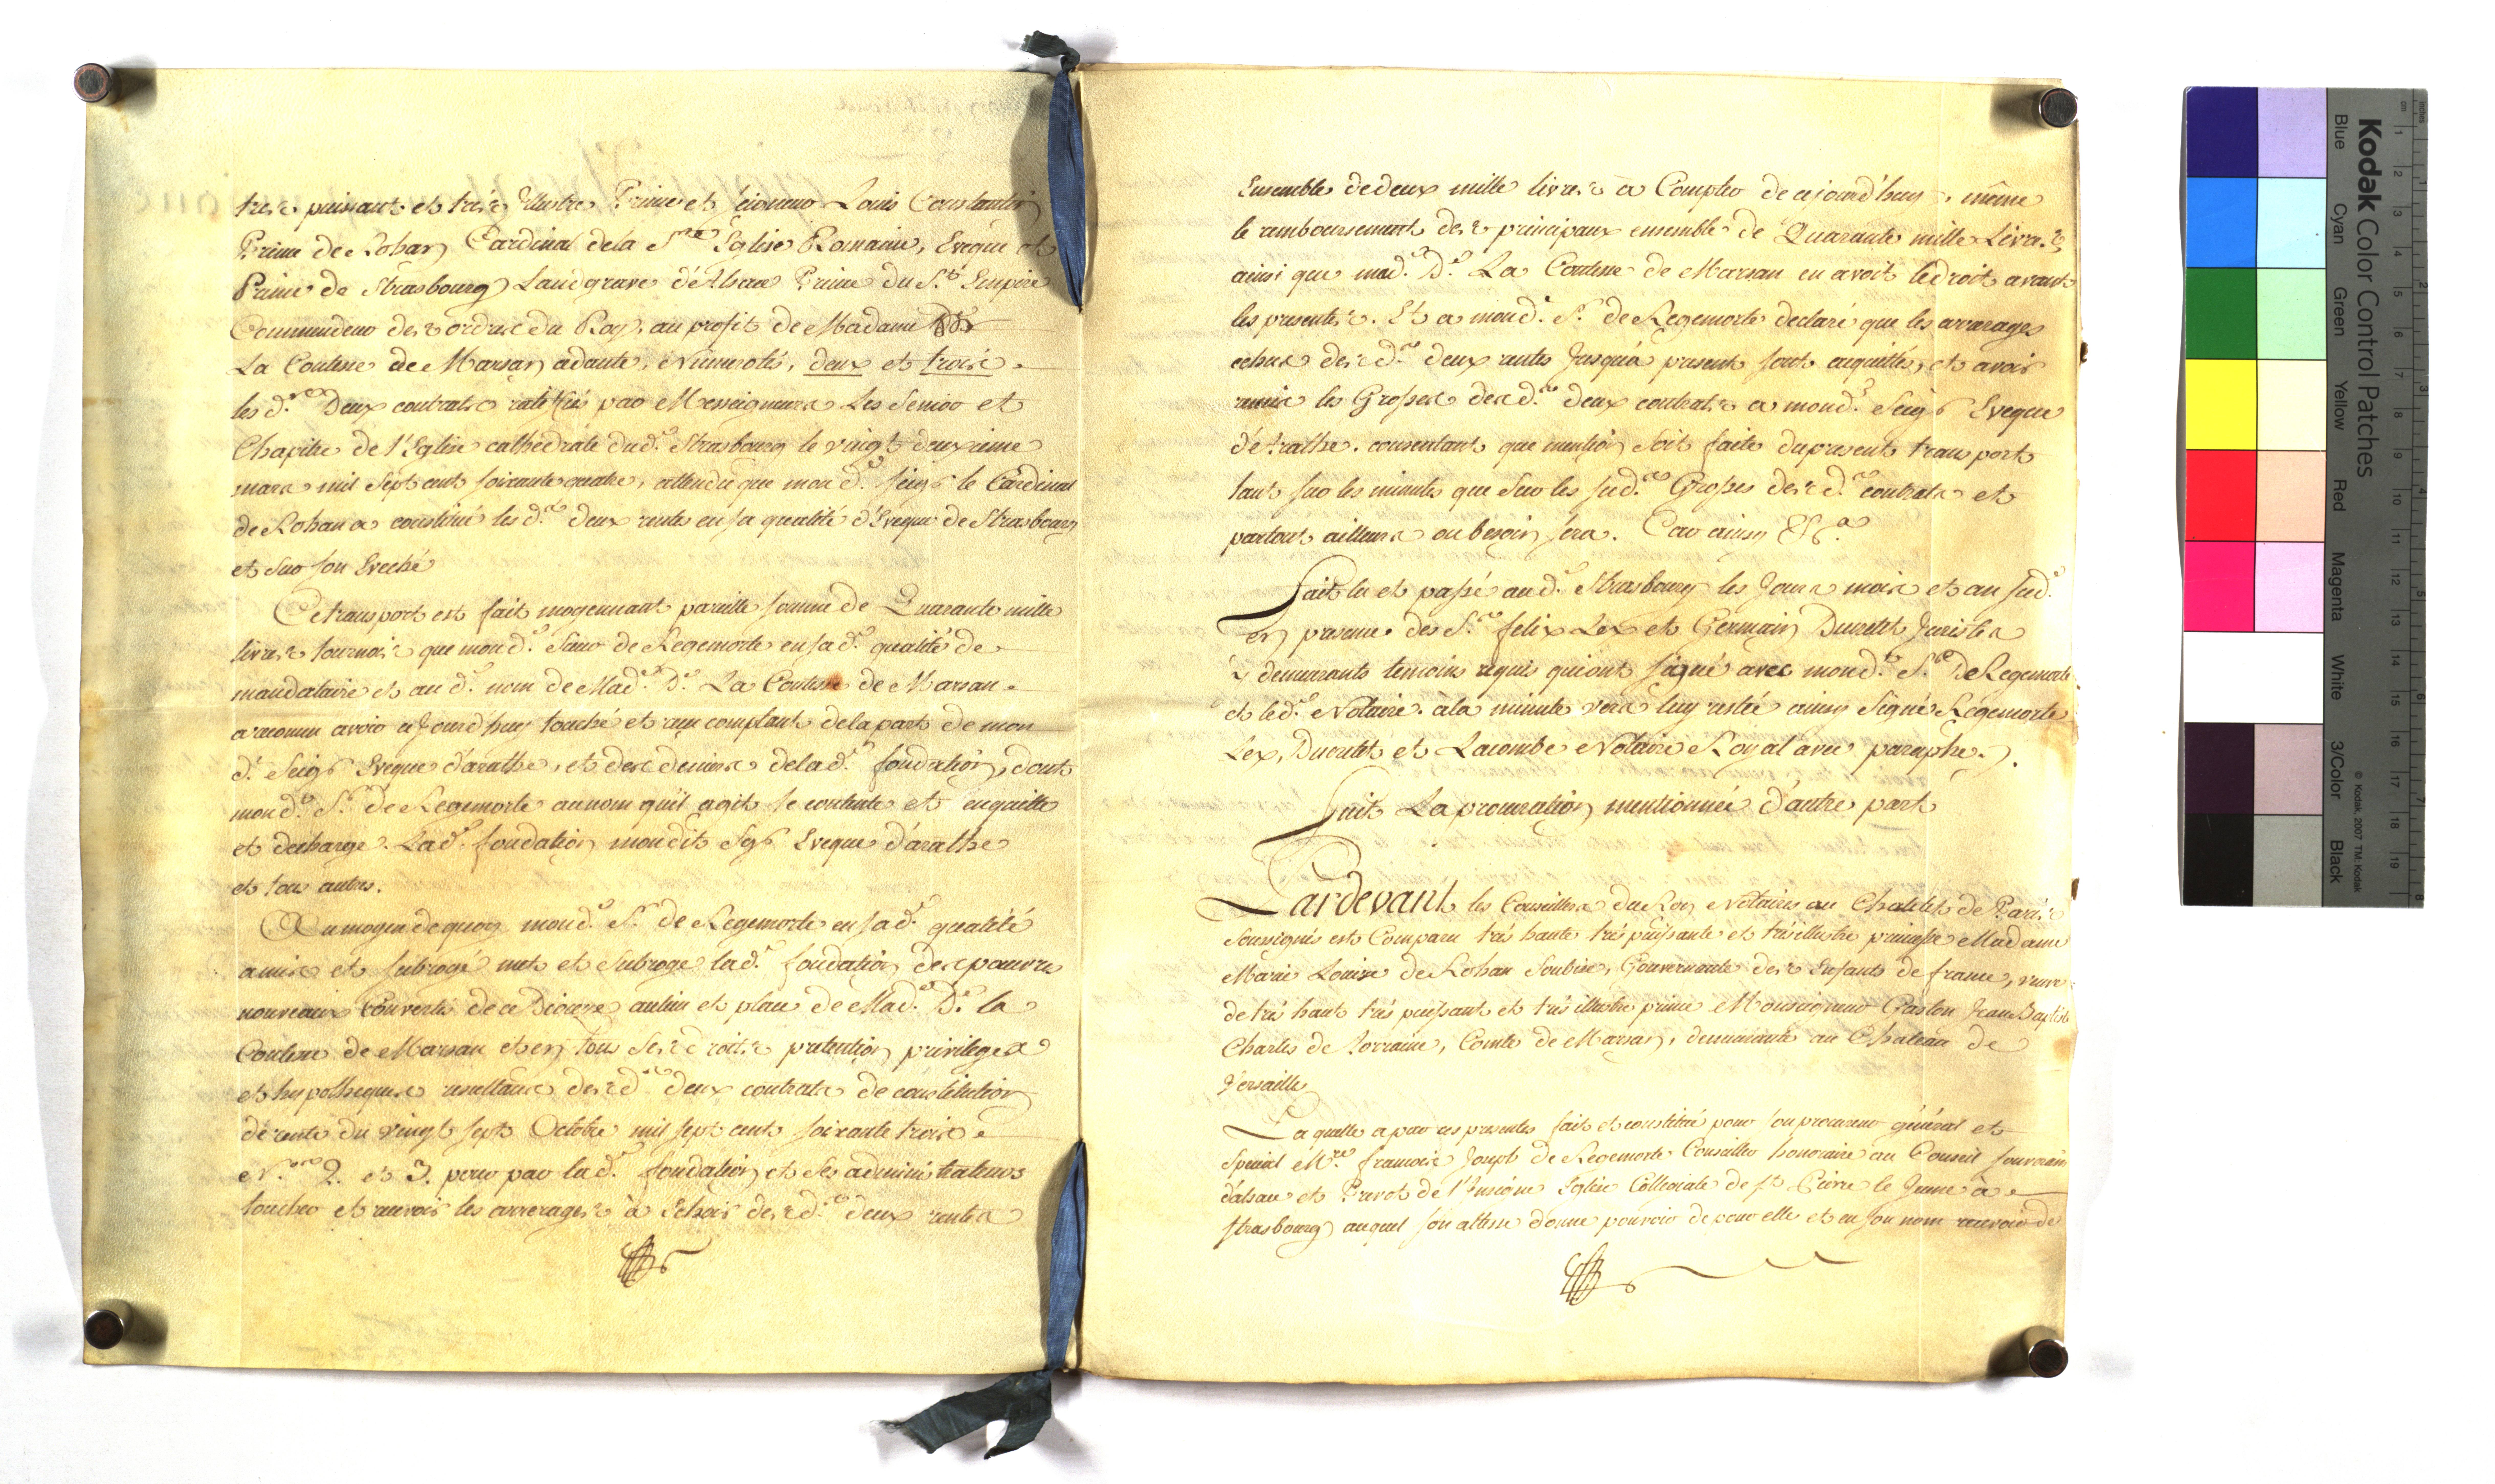 tres puissant et trés Illustre Prince et seigneur Louis Constantin
Prince de Rohan Cardinal de la Ste Eglise Romaine, Eveque et
Prince de Strasbourg Landgrave d'Alsace Prince du St. Empire
Commandeur des ordres du Roy, au profit de Madame
La Comtesse de Marsan adante, Numerotés, deux et trois.
les d.es Deux contrats ratiffiés par Messeigneurs Les Senior et
Chapitre de l'Eglise cathedrale dud. Strasbourg le vingt deuxieme
mars mil sept cent soixante quatre, attendu que mond. seigr le Cardinal
de Rohan a constitué les d.es deux rentes en sa qualité d'Eveque de Strasbourg
et sur son Eveché
Ce transport est fait moyennant pareille somme de Quarante mille
livres tournois que mond. Sieur de Regemorte en sa d. qualité de
mandataire et au d. nom de Mad.e D.e La Comtesse de Marsan.
a reconnu avoir cejourd'huy touché et reçu comptant de la part de mon
d. Seigr Eveque d'arathe, et des deniers de lad. fondation, dont
mond. Sr. de Regemorte au nom qu'il agit se contente et enquitte
et decharge. Lad. fondation mondit Sgr Eveque d'arathe
et tous autres.
Au moyen de quoy mond. Sr. de Regemorte en sa d. qualité
a mis et subrogé met et subroge lad. fondation des pauvres
nouveaux Convertis de ce Diocese au lieu et place de Mad.e D.e la
Comtesse de Marsan et en tous ses droits pretention privileges
et hypotheques resultans des d.es deux contrats de constitution
de rente du vingt sept Octobre mil sept cent soixante trois
N.os 2. et 3. pour par lad. fondation et ses administrateurs
toucher et recevoir les arrerages à Echoir des d.es deux rentes
Ensemble de deux mille livres a Compter de cejourd'huy, même
le remboursement des principaux ensemble de Quarante mille Livres,
ainsi que mad.e D.e La Comtesse de Marsan en avoit le droit avant
les presentes. Et a mond. Sr. de Regemorte declaré que les arrerages
echus des d.es deux rentes jusqu'à present sont acquittés, et avoir
remis les Grosses des d.es deux contrats a mond. Seigr Eveque
d'arathe. consentant que mention soit faite du present transport
tant sur les minutes que sur les sud.es Grosses des d.es contrats et
partout ailleurs ou besoin sera. Car ainsy &c.a
Fait lu et passé aud. Strasbourg les Jour mois et an sud.
en presence des Srs. felix Lex et Germain Ducretet Juristes
y demeurants temoins requis qui ont signé avec mond. Sr. De Regemorte
et led. Notaire. à la minute vers luy restée ainsy Signé Regemorte
Lex, Ducretet et Lacombe Notaire Royal avec paraphe.
Suit La procuration mentionnée d'autre part
Pardevant les Conseillers du Roy Notaires au Chatelet de Paris
soussignés est Comparu trés haute trés puissante et trés illustre princesse Madame
Marie Louise de Rohan Soubise, Gouvernante des Enfants de france, veuve
de trés haut trés puissant et trés illustre prince Monseigneur Gaston Jean Baptiste
Charles de Lorraine, Comte de Marsan, demeurante au Chateau de
Versailles
Laquelle a par ces presentes fait et constitué pour son procureur général et
Special Mre. francois Joseph de Regemorte Conseiller honoraire au Conseil souverain
d'alsace et Prevot de l'Insigne Eglise Collegiale de St. Pierre le Jeune à
strasbourg auquel son altesse donne pouvoir de pour elle et en son nom recevoir de
Kodak Color Control Patches
Blue Cyan Green Yellow Red Magenta White 3/Color Black
© Kodak, 2007 TM: Kodak
inches 1 2 3 4 5 6 7 8
cm 1 2 3 4 5 6 7 8 9 10 11 12 13 14 15 16 17 18 19